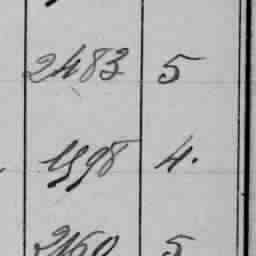 2483 5
1898 4.
2160 5